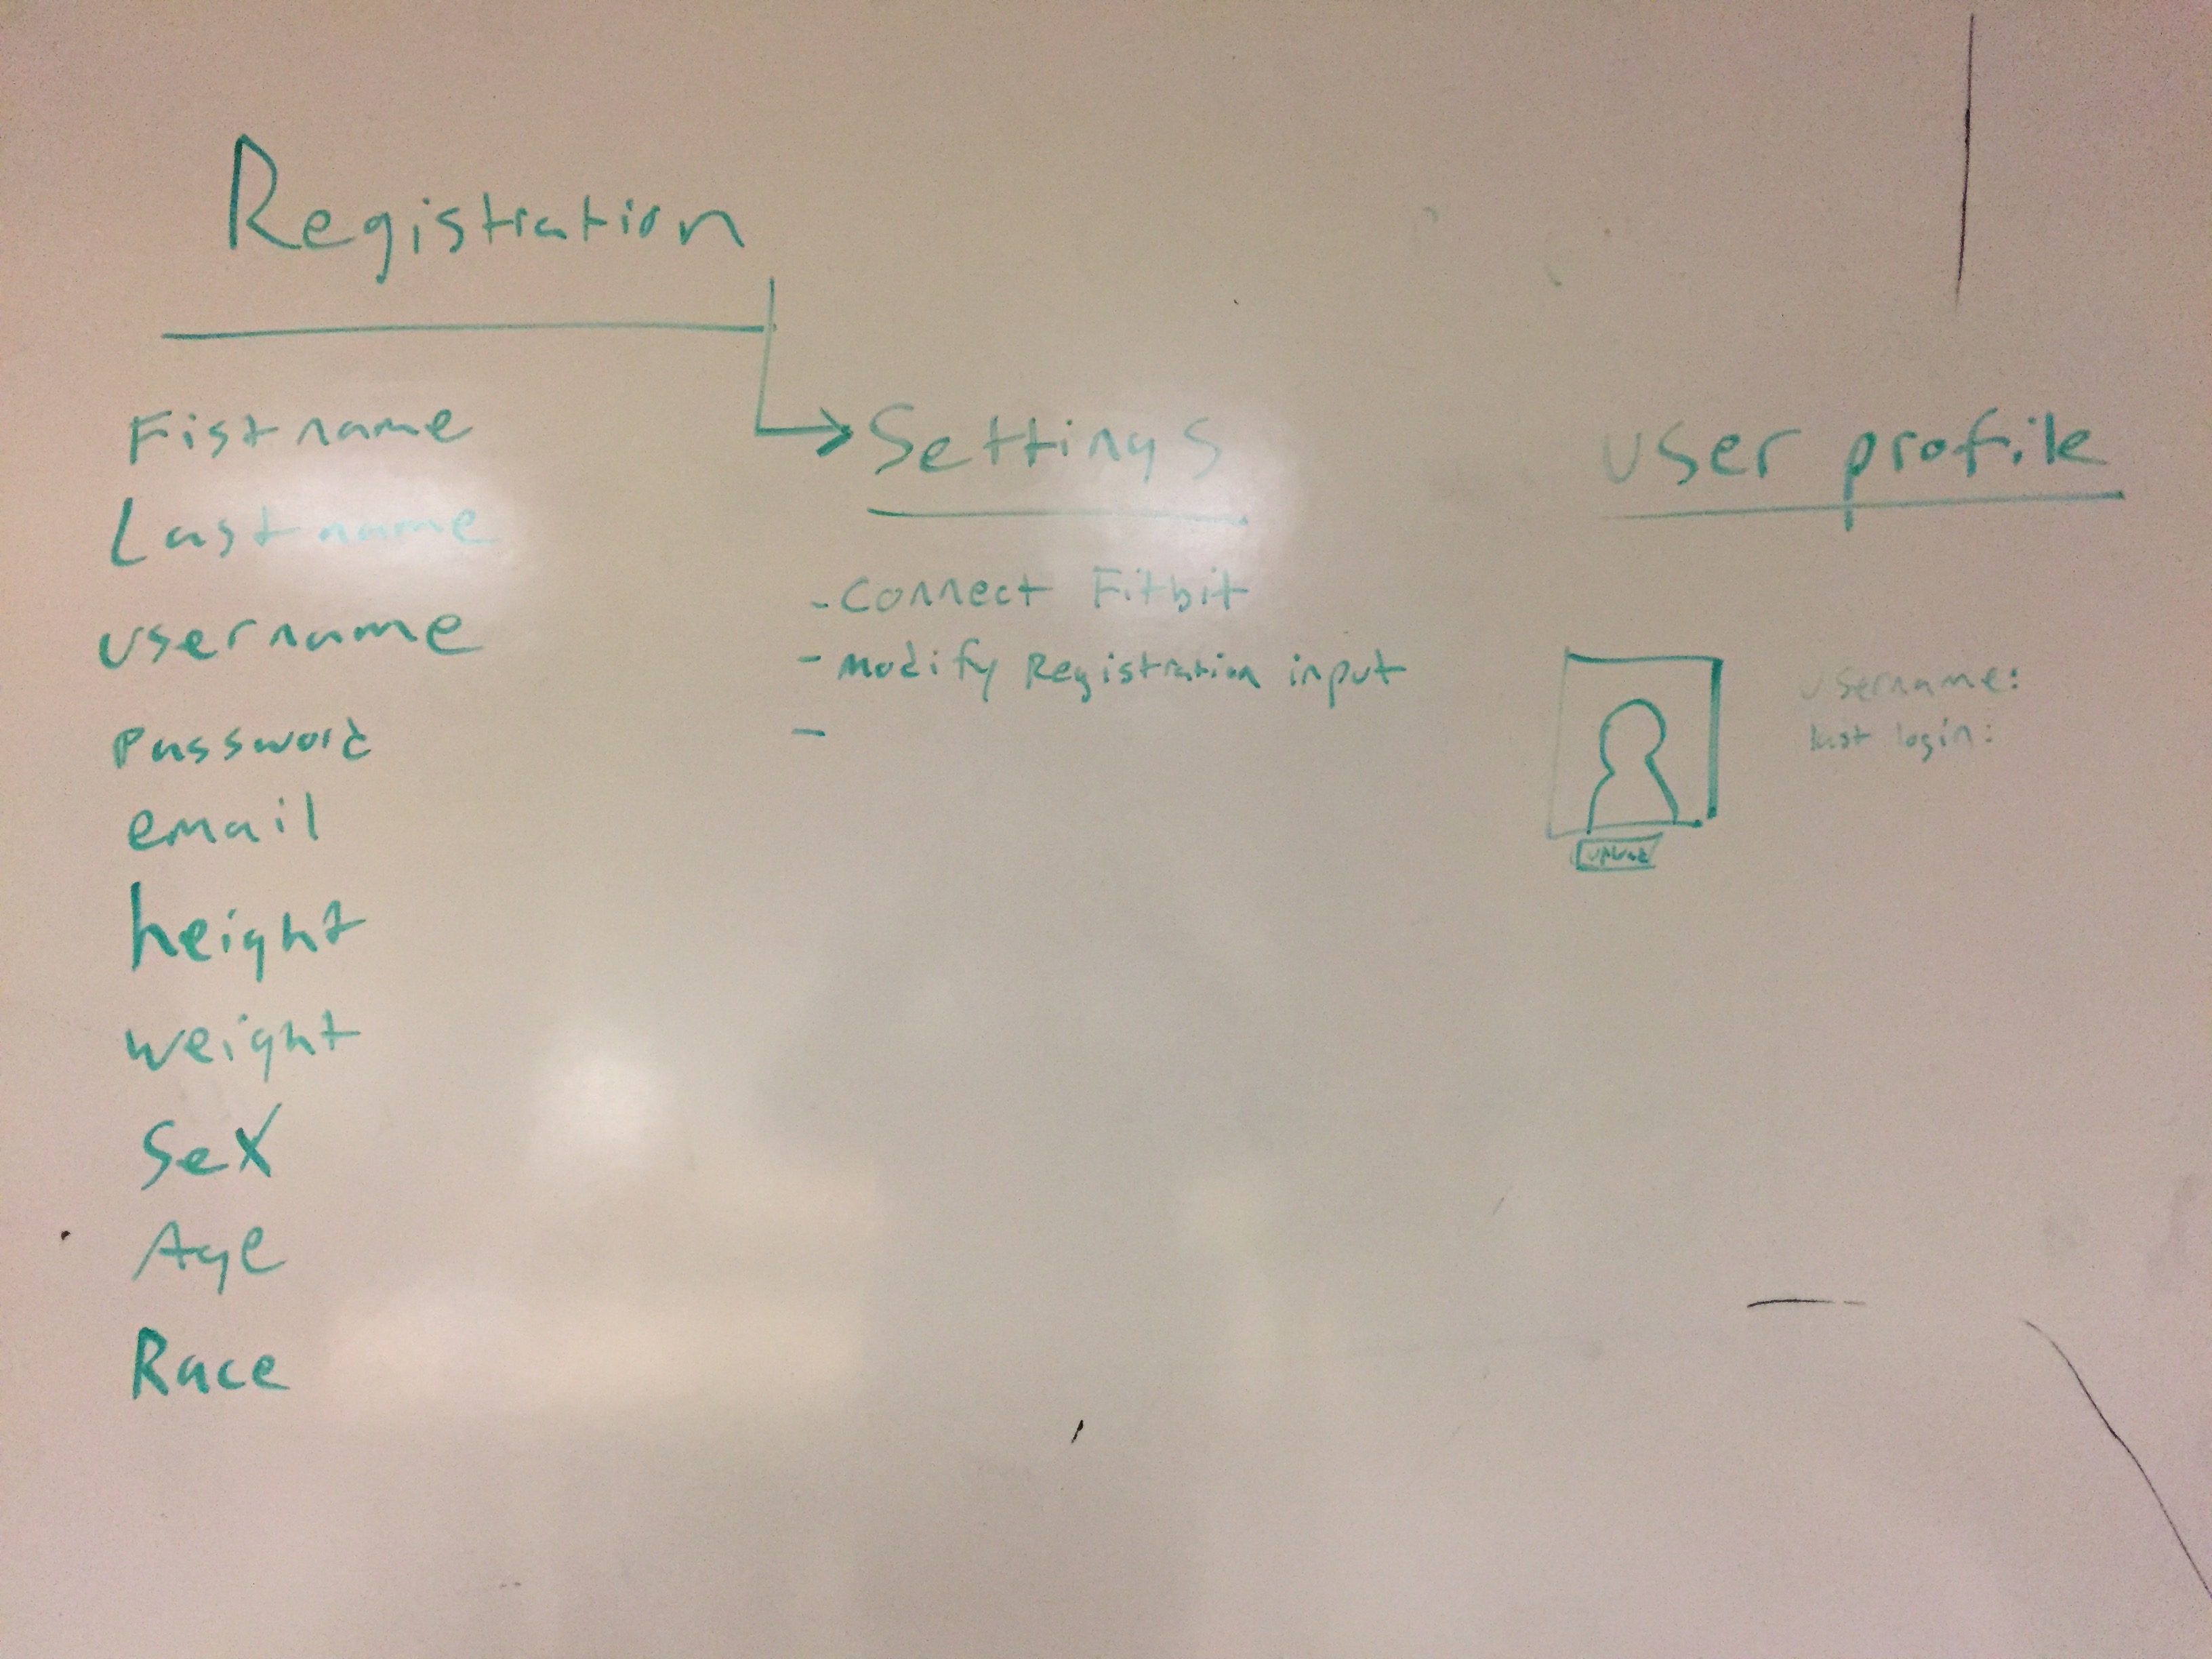 Registration
Fist name
Last name
username
password
email
height
weight
Sex
Age
Race
Settings
- Connect Fitbit
- Modify Registration input
-
user profile
username:
last login:
upload